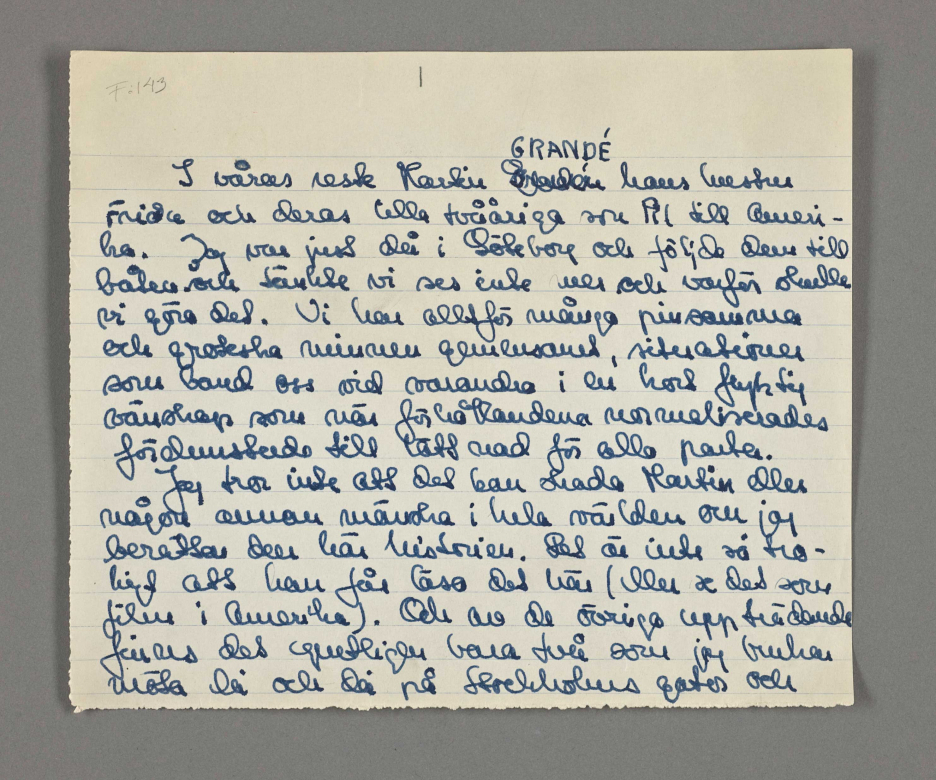 F:143
GRANDÉ
I våras reste Martin hans hustru
Frida och deras lilla tvååriga son Pil till Ameri-
ka. Jag var just då i Göteborg och följde dem till
båten och tänkte vi ses inte mer och varför skulle
vi göra det. Vi har alltför många pinsamma
och groteska minnen gemensamt, situationer
som band oss vid varandra i en kort flyktig
vänskap som när förhållandena normaliserades
fördunstade till lättnad för alla parter.
Jag tror inte att det kan skada Martin eller
någon annan människa i hela världen om jag
berättar den här historien. Det är inte så tro-
ligt att han får läsa det här (eller se det som
film i Amerika). Och av de övriga uppträdande
finns det egentligen bara två som jag brukar
möta då och då på Stockholms gator och